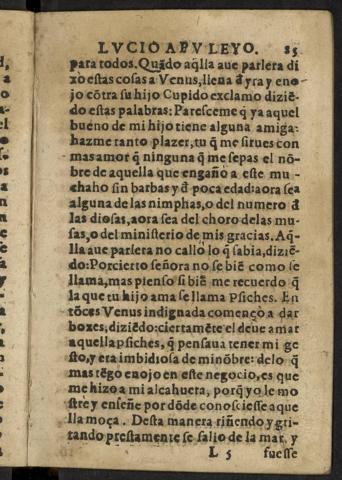 LVCIO APVLEYO. 85
para todos. Quãdo aq̃lla aue parlera di
xo estas cosas a Venus, llena d̃ yra y eno
jo cõtra su hijo Cupido exclamo diziẽ-
do estas palabras: Paresceme q̃ ya aquel
bueno de mi hijo tiene alguna amiga:
hazme tanto plazer, tu q̃ me sirues con
mas amor q̃ ninguna q̃ me sepas el nõ-
bre de aquella que engaño a este mu-
chaho sin barbas y d̃ poca edad: aora sea
alguna de las nimphas, o del numero d̃
las diosas, aora sea del choro de las mu-
sas, o del ministerio de mis gracias. Aq̃-
lla aue parlera no callo lo q̃ sabia, diziẽ-
do: Porcierto señora no se biẽ como se
llama, mas pienso si biẽ me recuerdo q̃
la que tu hijo ama se llama Psiches. En
tõces Venus indignada començo a dar
boxes, diziẽdo: ciertamẽte el deue amar
aquella psiches, q̃ pensaua tener mi ge
sto, y era imbidiosa de mi nõbre: de lo q̃
mas tẽgo enojo en este negocio, es que
me hizo a mi alcahueta, porq̃ yo le mo
stre y enseñe por dõde conosciesse aque
lla moça. Desta manera riñendo y gri-
tando prestamente se salio de la mar, y
L 5 fuesse